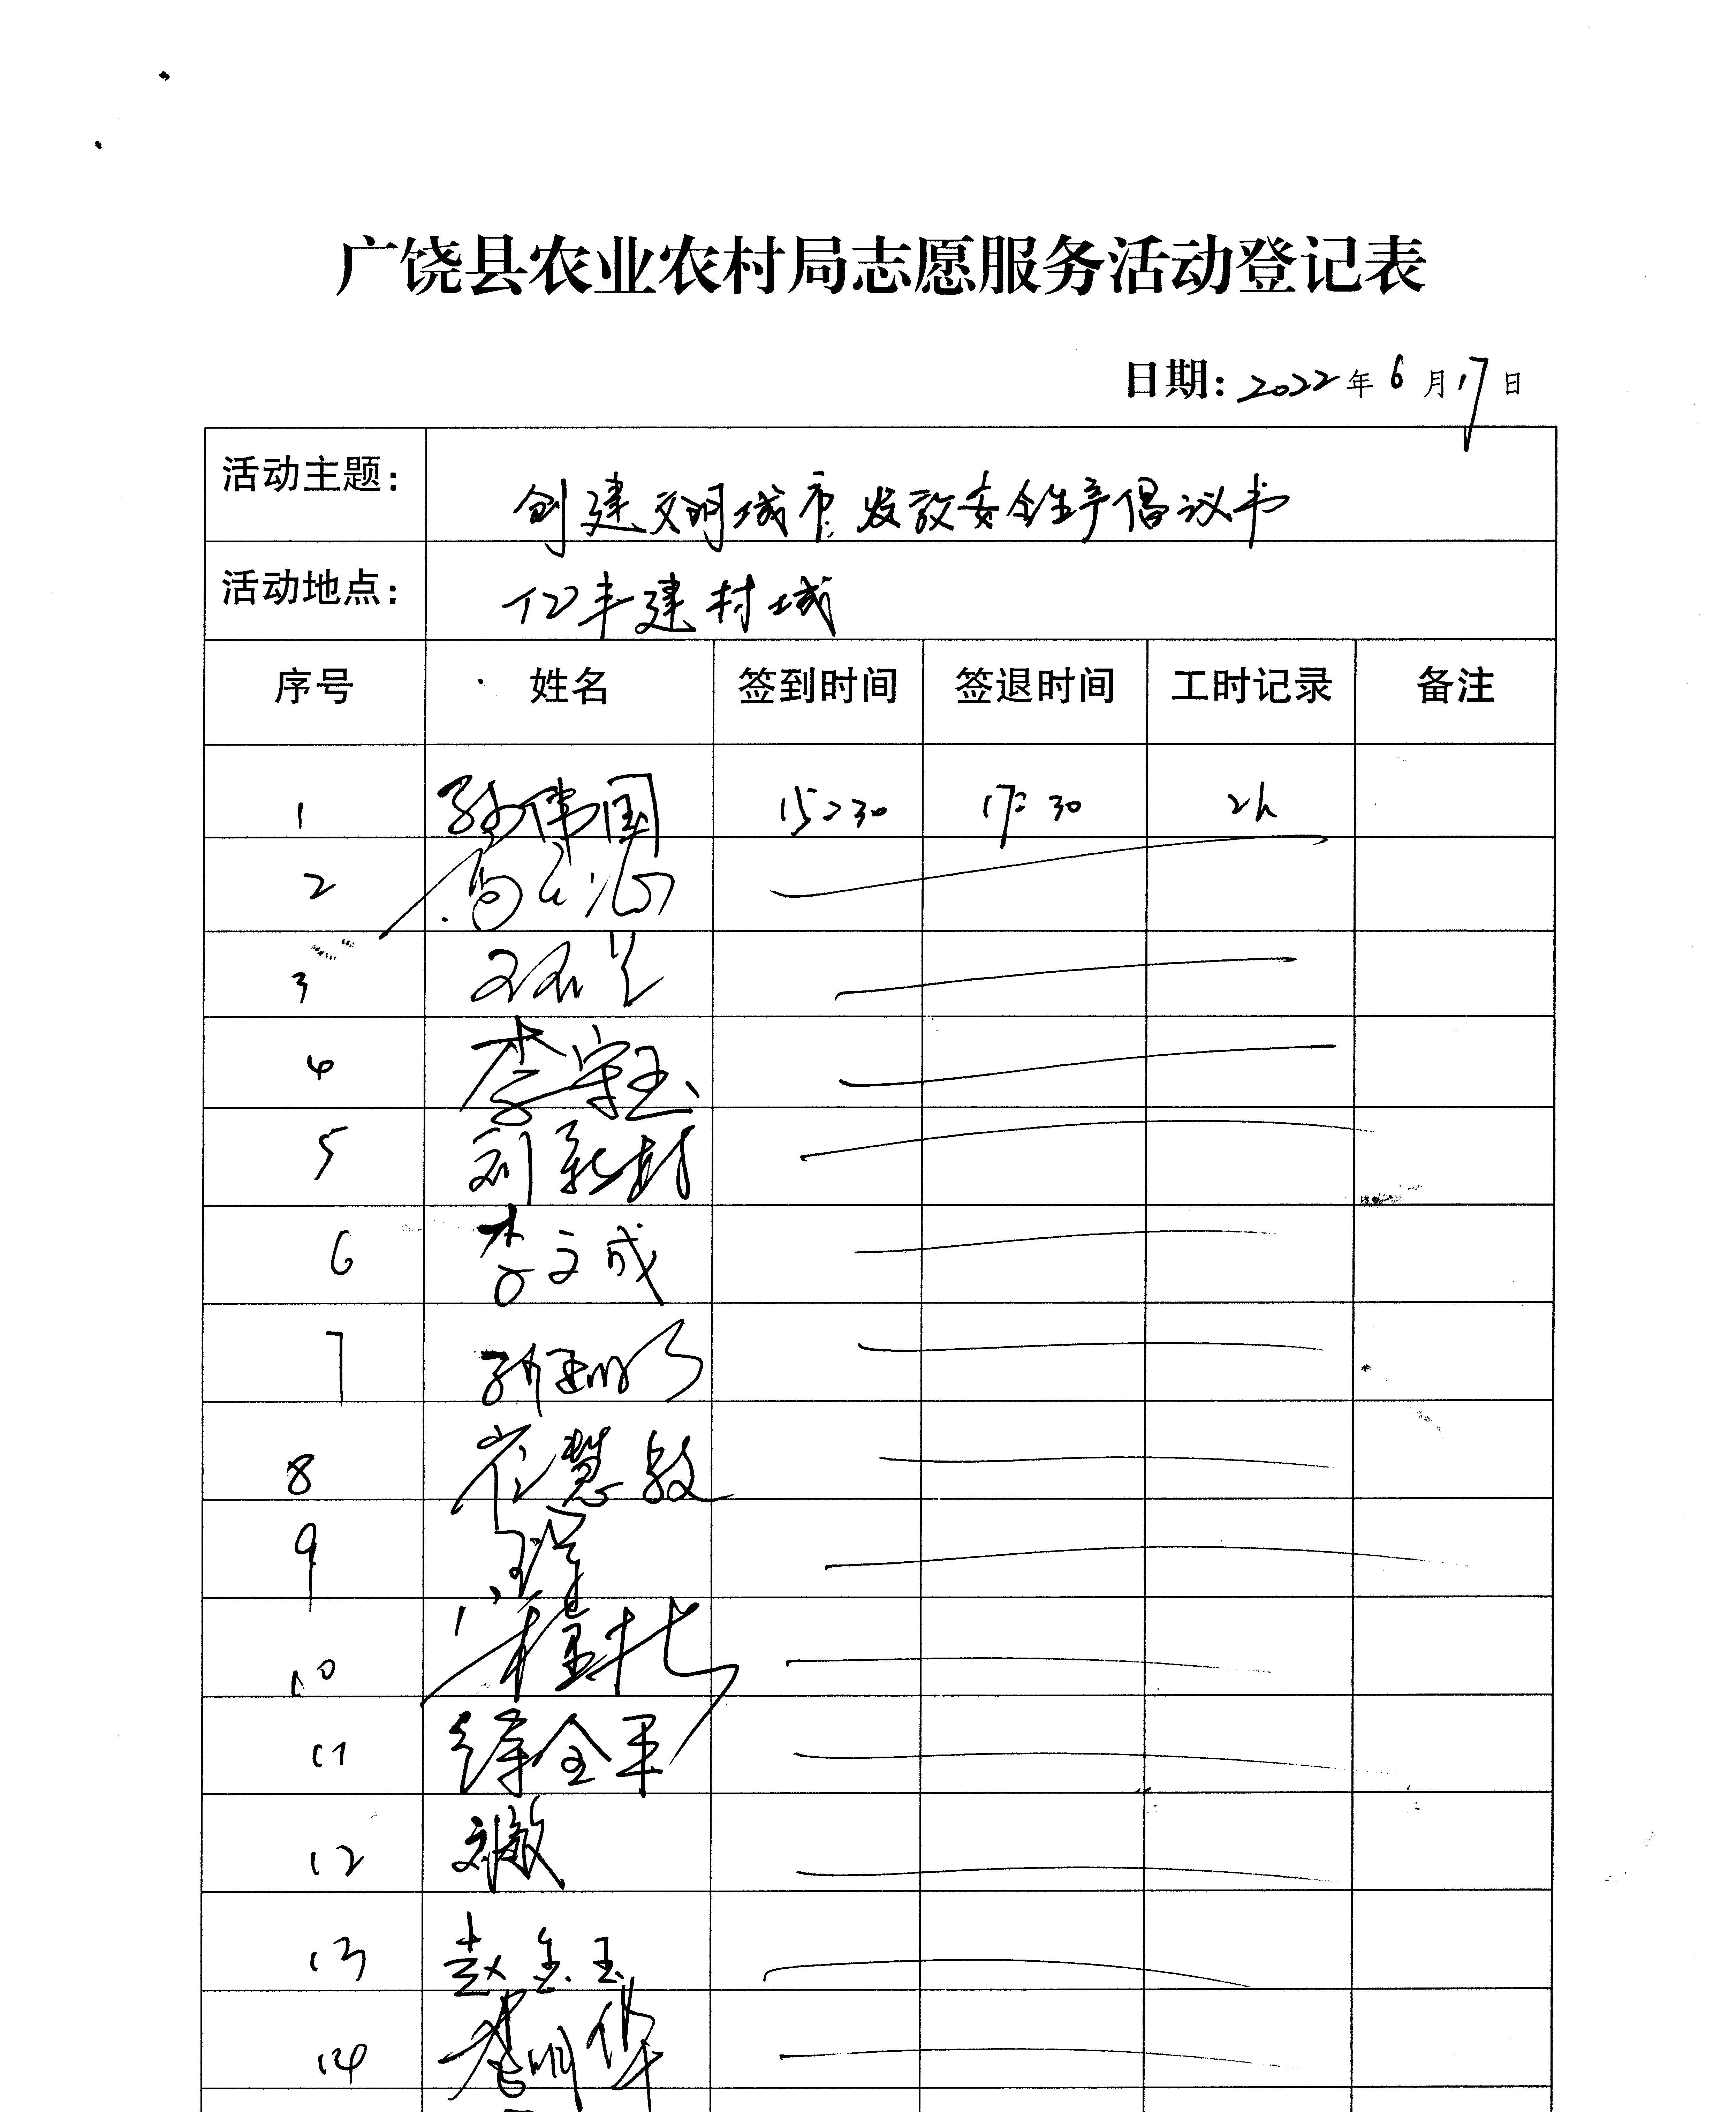 广饶县农业农村局志愿服务活动登记表
日期：2022年6月17日
活动主题： 创建文明城市 发放安全生产倡议书
活动地点： 亿丰建材城
序号 姓名 签到时间 签退时间 工时记录 备注
1 孙伟国 15:30 17:30 2h
2
3
4 李守玉
5 刘新村
6 李文成
7 孙玉明
8 崔慧敏
9
10
11 薛全军
12 刘敏
13 赵金玉
14 李明华